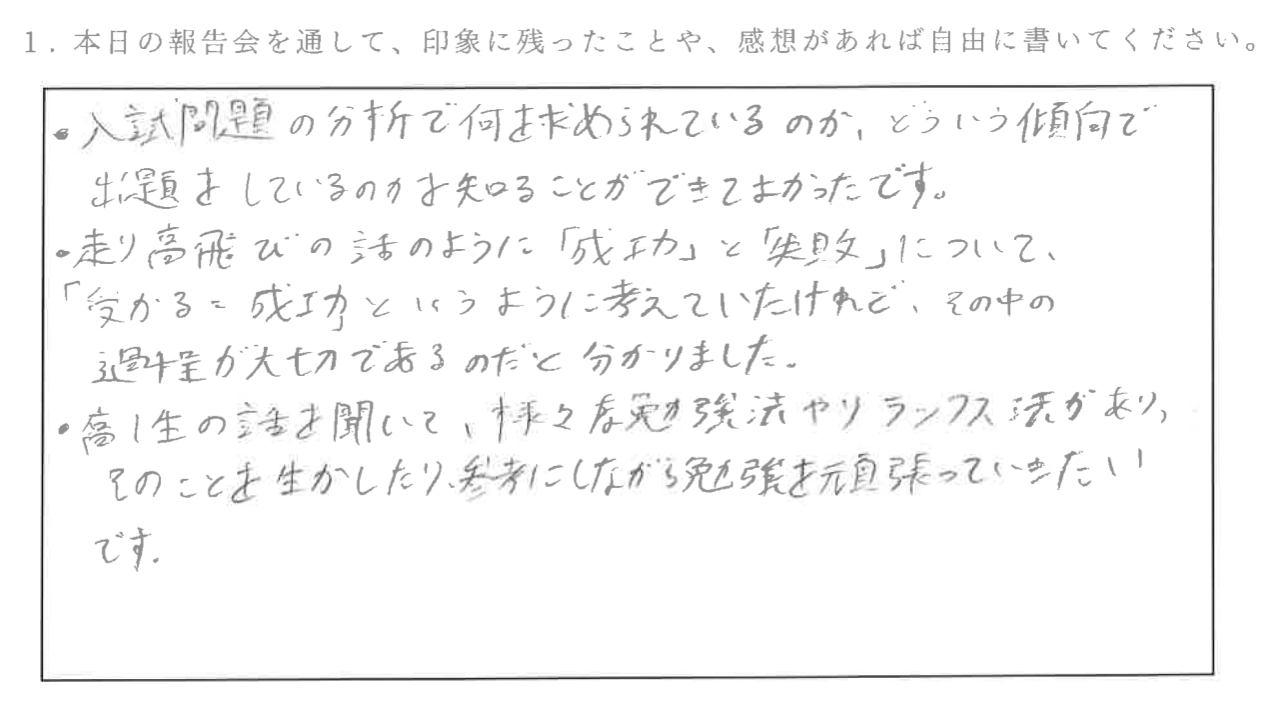 1. 本日の報告会を通して、印象に残ったことや、感想があれば自由に書いてください。
・入試問題の分析で何を求められているのか、どういう傾向で
出題をしているのかを知ることができてよかったです。
・走り高飛びの話のように「成功」と「失敗」について、
「受かる=成功」というように考えていたけれど、その中の
過程が大切であるのだと分かりました。
・高1生の話を聞いて、様々な勉強法やリランフス法があり、
そのことを生かしたり、参考にしながら勉強を頑張っていきたい
です。